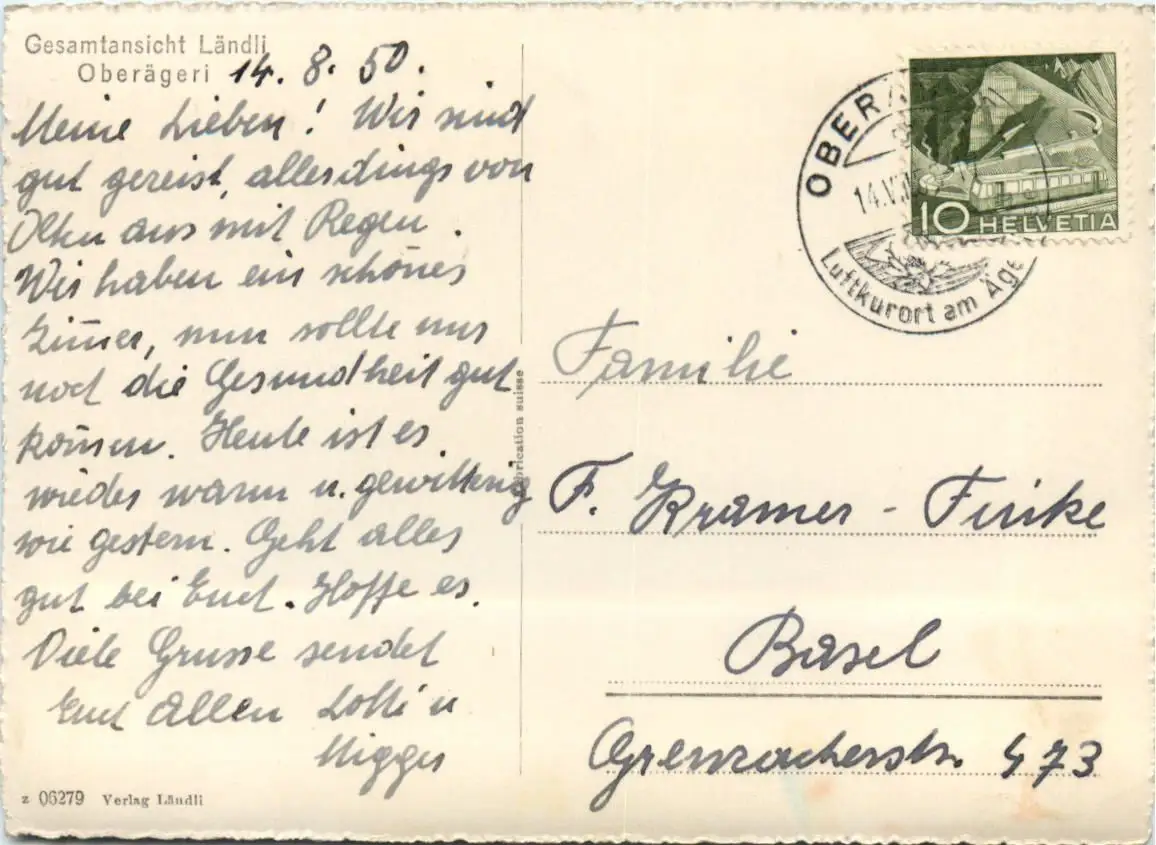 Gesamtansicht Ländli
Oberägeri 14. 8. 50.
Meine Lieben! Wir sind
gut gereist, allerdings von
Olten aus mit Regen.
Wir haben ein schönes
Zim̄er, nun sollte nur
noch die Gesundheit gut
kom̄en. Heute ist es
wieder warm u. gewitterig
wie gestern. Geht alles
gut bei Euch. Hoffe es.
Viele Grüsse sendet
Euch Allen Lotti u
z 06279 Verlag Ländli
fabrication suisse
OBERÄ
14.VIII.
Luftkurort am Äge
10 HELVETIA
Familie
F. Kramer - Finke
Basel
Grenzacherstr. 473